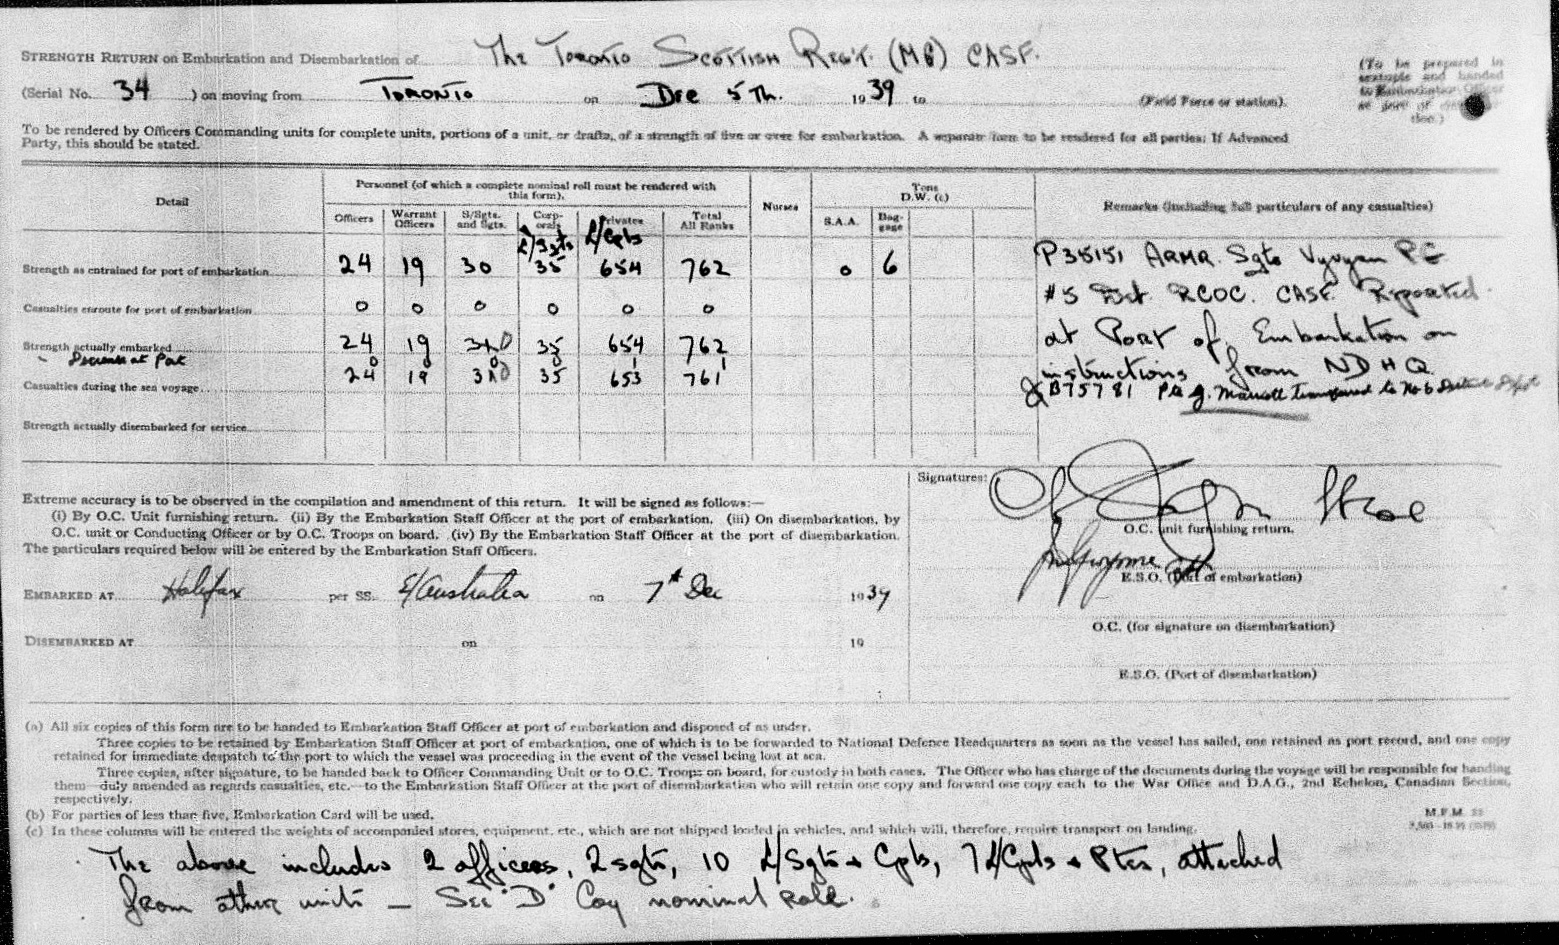 STRENGTH RETURN on Embarkation and Disembarkation of The Toronto Scottish Reg't. (MG) CASF.
(Serial No. 34 ) on moving from Toronto on Dec 5th. 1939 to (Field Force or station).
(To be prepared in
sextuple and handed
to Embarkation Officer
as port of
tion.)
To be rendered by Officers Commanding units for complete units, portions of a unit, or drafts, of a strength of five or over for embarkation. A separate form to be rendered for all parties; If Advanced
Party, this should be stated.
Detail
Personnel (of which a complete nominal roll must be rendered with
this form).
Officers Warrant Officers S/Sgts. and Sgts. Corp- orals Privates Total All Ranks
L/Sgts L/Cpls
Nurses
Tons
D.W. (c)
S.A.A. Bag- gage
Remarks (including full particulars of any casualties)
Strength as entrained for port of embarkation 24 19 30 35 654 762 0 6
Casualties enroute for port of embarkation 0 0 0 0 0 0
Strength actually embarked 24 19 30 35 654 762
Decrease at Port 0 0 0 0 1 1
24 19 30 35 653 761
Casualties during the sea voyage
Strength actually disembarked for service
P35151 Armr. Sgts Vyvyan
#5 Det. RCOC. CASF. Reported
at Port of Embarkation on
instructions from NDHQ
& B75781 Pte J. transferred to No 6 District Depot
Extreme accuracy is to be observed in the compilation and amendment of this return. It will be signed as follows:—
(i) By O.C. Unit furnishing return. (ii) By the Embarkation Staff Officer at the port of embarkation. (iii) On disembarkation, by
O.C. unit or Conducting Officer or by O.C. Troops on board. (iv) By the Embarkation Staff Officer at the port of disembarkation.
The particulars required below will be entered by the Embarkation Staff Officers.
EMBARKED AT Halifax per SS. E/Australia on 7th Dec 1939
DISEMBARKED AT on 19
Signatures:
O.C. unit furnishing return.
E.S.O. (Port of embarkation)
O.C. (for signature on disembarkation)
E.S.O. (Port of disembarkation)
(a) All six copies of this form are to be handed to Embarkation Staff Officer at port of embarkation and disposed of as under.
Three copies to be retained by Embarkation Staff Officer at port of embarkation, one of which is to be forwarded to National Defence Headquarters as soon as the vessel has sailed, one retained as port record, and one copy
retained for immediate despatch to the port to which the vessel was proceeding in the event of the vessel being lost at sea.
Three copies, after signature, to be handed back to Officer Commanding Unit or to O.C. Troops on board, for custody in both cases. The Officer who has charge of the documents during the voyage will be responsible for handing
them—duly amended as regards casualties, etc.—to the Embarkation Staff Officer at the port of disembarkation who will retain one copy and forward one copy each to the War Office and D.A.G., 2nd Echelon, Canadian Section,
respectively.
(b) For parties of less than five, Embarkation Card will be used.
(c) In these columns will be entered the weights of accompanied stores, equipment, etc., which are not shipped loaded in vehicles, and which will, therefore, require transport on landing.
M.F.M. 22
The above includes 2 officers, 2 sgts, 10 L/Sgts + Cpls, 7 L/Cpls + Ptes, attached
from other units — See "D" Coy nominal roll.